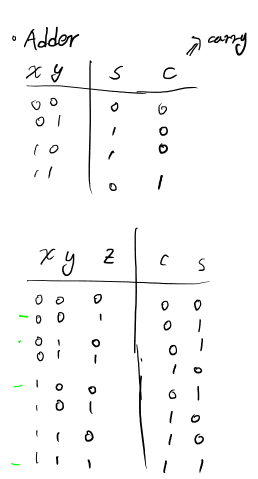 • Adder → carry
x y | S C
0 0 | 0 0
0 1 | 1 0
1 0 | 1 0
1 1 | 0 1
x y z | C S
0 0 0 | 0 0
0 0 1 | 0 1
0 1 0 | 0 1
0 1 1 | 1 0
1 0 0 | 0 1
1 0 1 | 1 0
1 1 0 | 1 0
1 1 1 | 1 1